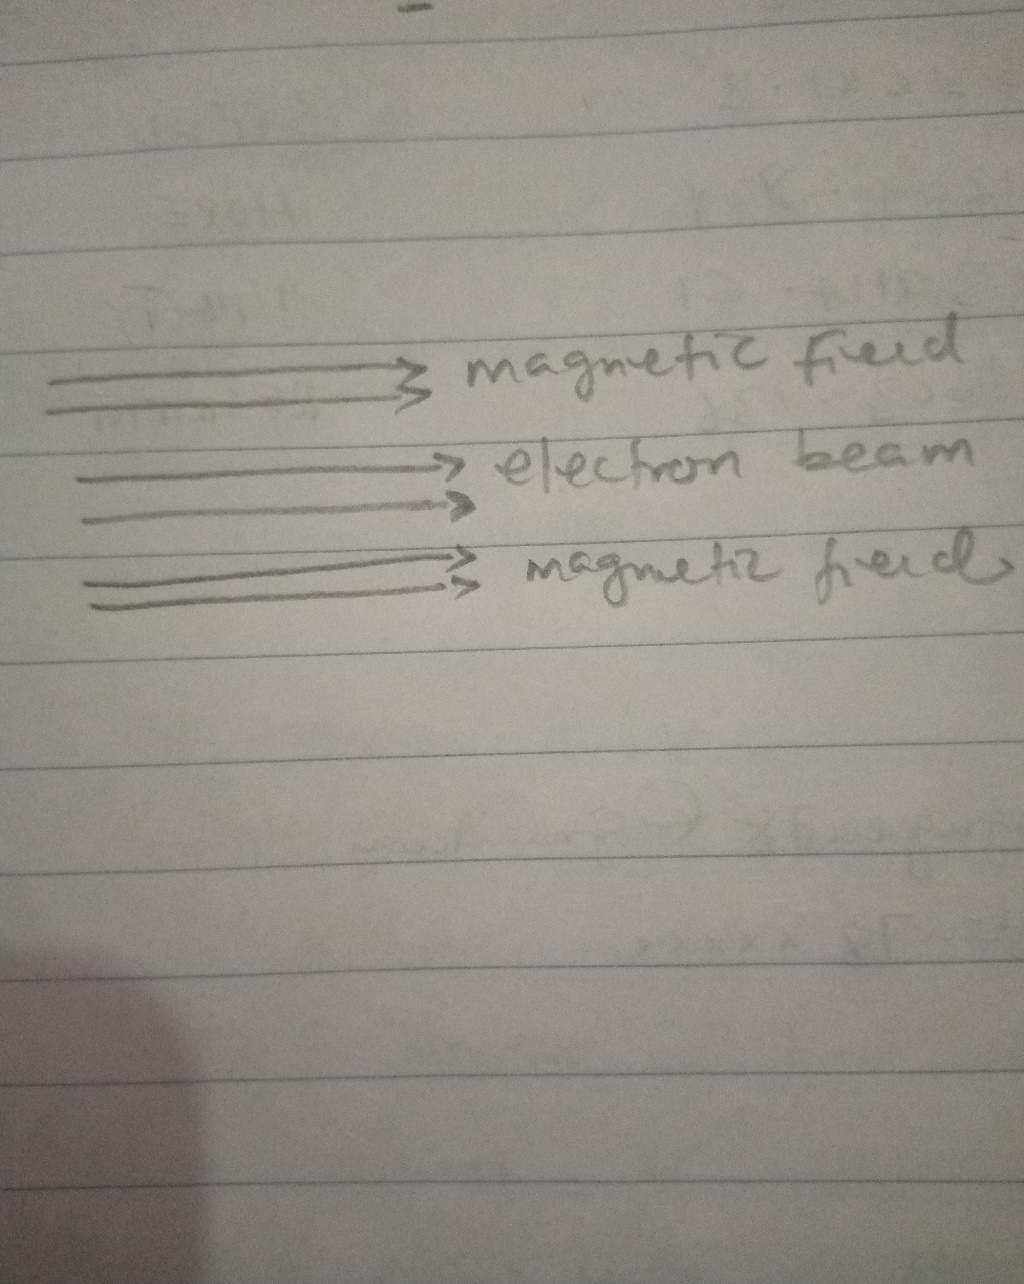 magnetic field
electron beam
magnetic field